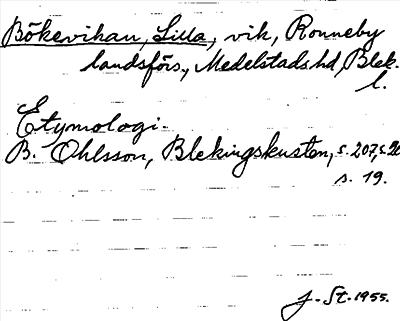 Bökevikan, Lilla, vik, Ronneby
landsförs., Medelstads hd, Blek.
l.
Etymologi.
B. Ohlsson, Blekingskusten, s. 207, s. 20
s. 19.
J. St. 1955.